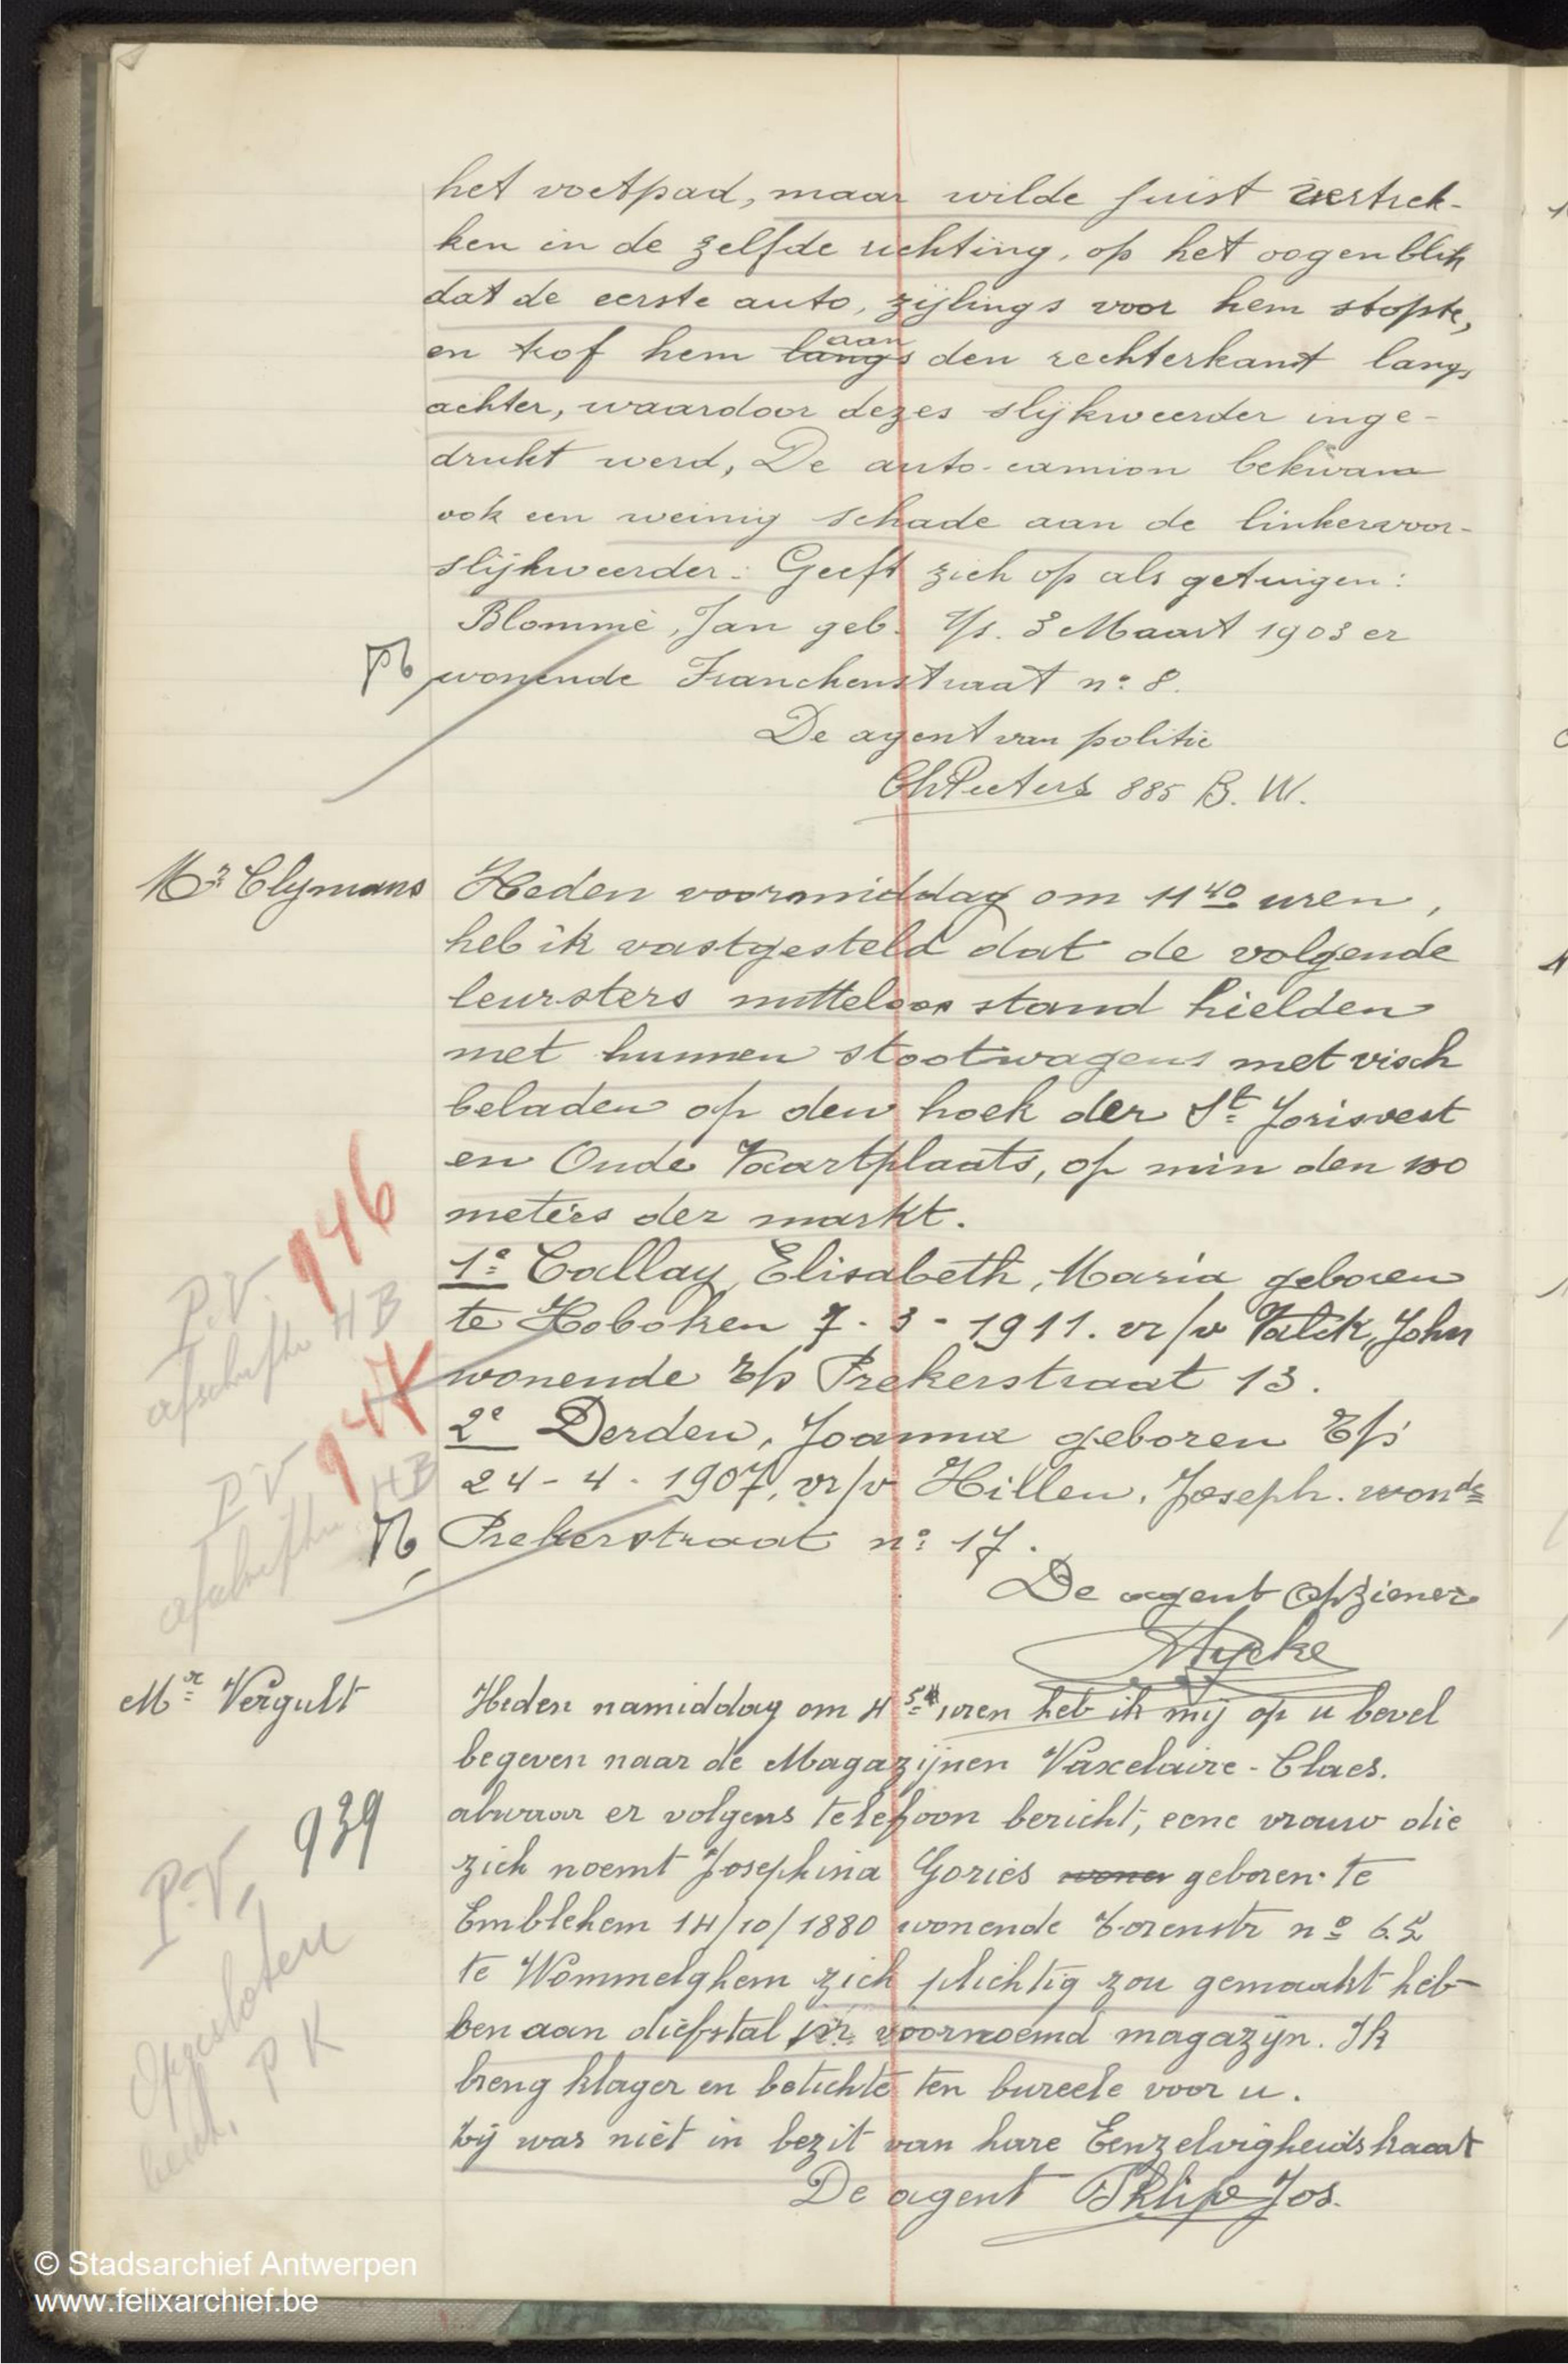 het voetpad, maar wilde juist vertrek-
ken in de zelfde richting, op het oogenblik
dat de eerste auto, zijlings voor hem stopte,
en trof hem langs aan den rechterkant langs
achter, waardoor dezes slijkweerder inge-
drukt werd, De auto-camion bekwam
ook een weinig schade aan de linkervoor-
slijkweerder. Geeft zich op als getuigen:
Blommé, Jan geb. 3 Maart 1903 er
wonende Franckenstraat n° 8.
De agent van politie
Ch Peeters 885 B. W.
Mr Clymans
Heden voormiddag om 11 40 uren,
heb ik vastgesteld dat de volgende
leursters nutteloos stand hielden
met hunnen stootwagens met visch
beladen op den hoek der St Jorisvest
en Oude Vaartplaats, op min den 100
meters der markt.
P.V. 946
afschrift HB
1° Callay, Elisabeth, Maria geboren
te Hoboken 7-3-1911. vr/v Valck, John
wonende t/s Prekerstraat 13.
P.V 947
afschrift HB
2° Derden, Joanna geboren t/s
24-4-1907, vr/v Hillen, Joseph. wonde
Prekerstraat n° 17.
De agent Opziener
Mr Vergult
Heden namiddag om 4 54 uren heb ik mij op u bevel
begeven naar de Magazijnen Vaxelaire-Claes.
alwaar er volgens telefoon bericht, eene vrouw die
zich noemt Josephina Gories wonen geboren te
Emblehem 14/10/1880 wonende Torenstr n° 65
te Wommelghem zich plichtig zou gemaakt heb-
ben aan diefstal in voornoemd magazijn. Ik
breng klager en betichte ten bureele voor u.
Zij was niet in bezit van hare Eenzelvigheidskaart
De agent Philips Jos.
P.V, 939
Opgesloten
besch. P K
© Stadsarchief Antwerpen
www.felixarchief.be